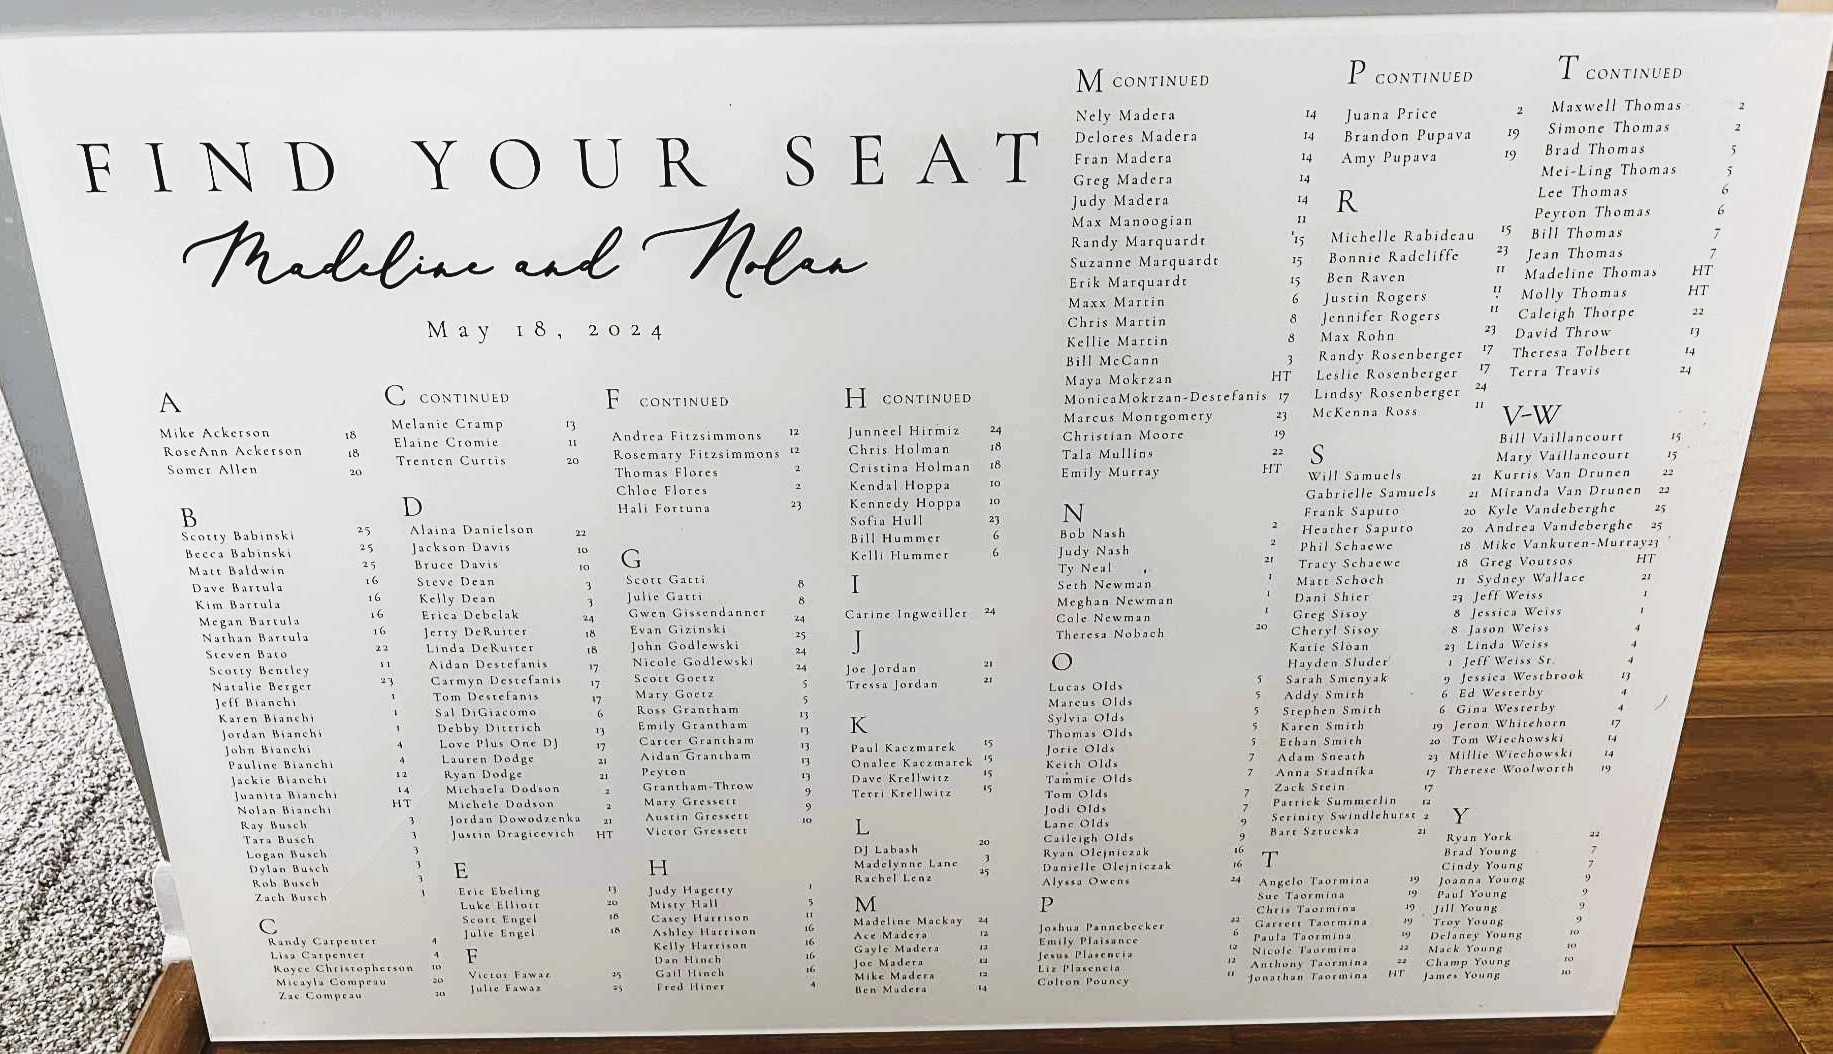 FIND YOUR SEAT
Madeline and Nolan
May 18, 2024
A
Mike Ackerson 18
RoseAnn Ackerson 18
Somer Allen 20
B
Scotty Babinski 25
Becca Babinski 25
Matt Baldwin 25
Dave Bartula 16
Kim Bartula 16
Megan Bartula 16
Nathan Bartula 16
Steven Bato 22
Scotty Bentley 11
Natalie Berger 23
Jeff Bianchi 1
Karen Bianchi 1
Jordan Bianchi 1
John Bianchi 4
Pauline Bianchi 4
Jackie Bianchi 12
Juanita Bianchi 14
Nolan Bianchi HT
Ray Busch 3
Tara Busch 3
Logan Busch 3
Dylan Busch 3
Rob Busch 3
Zach Busch 3
C
Randy Carpenter 4
Lisa Carpenter 4
Royce Christopherson 10
Micayla Compeau 20
Zac Compeau 20
C CONTINUED
Melanie Cramp 13
Elaine Cromie 11
Trenten Curtis 20
D
Alaina Danielson 22
Jackson Davis 10
Bruce Davis 10
Steve Dean 3
Kelly Dean 3
Erica Debelak 24
Jerry DeRuiter 18
Linda DeRuiter 18
Aidan Destefanis 17
Carmyn Destefanis 17
Tom Destefanis 17
Sal DiGiacomo 6
Debby Dittrich 13
Love Plus One DJ 17
Lauren Dodge 21
Ryan Dodge 21
Michaela Dodson 2
Michele Dodson 2
Jordan Dowodzenka 21
Justin Dragicevich HT
E
Eric Ebeling 13
Luke Elliott 20
Scott Engel 18
Julie Engel 18
F
Victor Fawaz 25
Julie Fawaz 25
F CONTINUED
Andrea Fitzsimmons 12
Rosemary Fitzsimmons 12
Thomas Flores 2
Chloe Flores 2
Hali Fortuna 23
G
Scott Gatti 8
Julie Gatti 8
Gwen Gissendanner 24
Evan Gizinski 25
John Godlewski 24
Nicole Godlewski 24
Scott Goetz 5
Mary Goetz 5
Ross Grantham 13
Emily Grantham 13
Carter Grantham 13
Aidan Grantham 13
Peyton
Grantham-Throw 13
Mary Gressett 9
Austin Gressett 9
Victor Gressett 10
H
Judy Hagerty 1
Misty Hall 5
Casey Harrison 11
Ashley Harrison 16
Kelly Harrison 16
Dan Hinch 16
Gail Hinch 16
Fred Hiner 4
H CONTINUED
Junneel Hirmiz 24
Chris Holman 18
Cristina Holman 18
Kendal Hoppa 10
Kennedy Hoppa 10
Sofia Hull 23
Bill Hummer 6
Kelli Hummer 6
I
Carine Ingweiller 24
J
Joe Jordan 21
Tressa Jordan 21
K
Paul Kaczmarek 15
Onalee Kaczmarek 15
Dave Krellwitz 15
Terri Krellwitz 15
L
DJ Labash 20
Madelynne Lane 3
Rachel Lenz 25
M
Madeline Mackay 24
Ace Madera 12
Gayle Madera 12
Joe Madera 12
Mike Madera 12
Ben Madera 14
M CONTINUED
Nely Madera 14
Delores Madera 14
Fran Madera 14
Greg Madera 14
Judy Madera 14
Max Manoogian 11
Randy Marquardt 15
Suzanne Marquardt 15
Erik Marquardt 15
Maxx Martin 6
Chris Martin 8
Kellie Martin 8
Bill McCann 3
Maya Mokrzan HT
MonicaMokrzan-Destefanis 17
Marcus Montgomery 23
Christian Moore 19
Tala Mullins 22
Emily Murray HT
N
Bob Nash 2
Judy Nash 2
Ty Neal 21
Seth Newman 1
Meghan Newman 1
Cole Newman 1
Theresa Nobach 20
O
Lucas Olds 5
Marcus Olds 5
Sylvia Olds 5
Thomas Olds 5
Jorie Olds 5
Keith Olds 7
Tammie Olds 7
Tom Olds 7
Jodi Olds 7
Lane Olds 9
Caileigh Olds 9
Ryan Olejniczak 16
Danielle Olejniczak 16
Alyssa Owens 24
P
Joshua Pannebecker 22
Emily Plaisance 6
Jesus Plasencia 12
Liz Plasencia 12
Colton Pouncy 11
P CONTINUED
Juana Price 2
Brandon Pupava 19
Amy Pupava 19
R
Michelle Rabideau 15
Bonnie Radcliffe 23
Ben Raven 11
Justin Rogers 11
Jennifer Rogers 11
Max Rohn 23
Randy Rosenberger 17
Leslie Rosenberger 17
Lindsy Rosenberger 24
McKenna Ross 11
S
Will Samuels 21
Gabrielle Samuels 21
Frank Saputo 20
Heather Saputo 20
Phil Schaewe 18
Tracy Schaewe 18
Matt Schoch 11
Dani Shier 23
Greg Sisoy 8
Cheryl Sisoy 8
Katie Sloan 23
Hayden Sluder 1
Sarah Smenyak 9
Addy Smith 6
Stephen Smith 6
Karen Smith 19
Ethan Smith 20
Adam Sneath 23
Anna Stadnika 17
Zack Stein 17
Patrick Summerlin 12
Serinity Swindlehurst 2
Bart Sztucska 21
T
Angelo Taormina 19
Sue Taormina 19
Chris Taormina 19
Garrett Taormina 19
Paula Taormina 19
Nicole Taormina 22
Anthony Taormina 22
Jonathan Taormina HT
T CONTINUED
Maxwell Thomas 2
Simone Thomas 2
Brad Thomas 5
Mei-Ling Thomas 5
Lee Thomas 6
Peyton Thomas 6
Bill Thomas 7
Jean Thomas 7
Madeline Thomas HT
Molly Thomas HT
Caleigh Thorpe 22
David Throw 13
Theresa Tolbert 14
Terra Travis 24
V-W
Bill Vaillancourt 15
Mary Vaillancourt 15
Kurtis Van Drunen 22
Miranda Van Drunen 22
Kyle Vandeberghe 25
Andrea Vandeberghe 25
Mike Vankuren-Murray23
Greg Voutsos HT
Sydney Wallace 21
Jeff Weiss 1
Jessica Weiss 1
Jason Weiss 4
Linda Weiss 4
Jeff Weiss Sr. 4
Jessica Westbrook 13
Ed Westerby 4
Gina Westerby 4
Jeron Whitehorn 17
Tom Wiechowski 14
Millie Wiechowski 14
Therese Woolworth 19
Y
Ryan York 22
Brad Young 7
Cindy Young 7
Joanna Young 9
Paul Young 9
Jill Young 9
Troy Young 9
Delaney Young 10
Mack Young 10
Champ Young 10
James Young 10